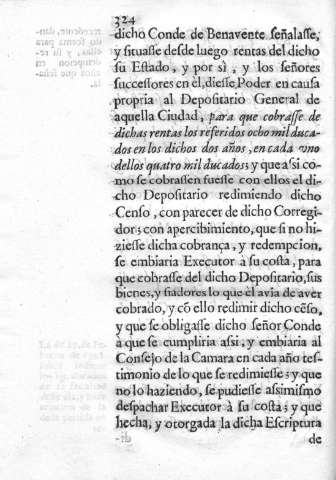 324
dicho Conde de Benavente señalasse,
y situasse desde luego rentas del dicho
su Estado, y por sì, y los señores
successores en èl, diesse Poder en causa
propria al Depositario General de
aquella Ciudad, para que cobrasse de
dichas rentas los referidos ocho mil duca-
dos en los dichos dos años, en cada vno
dellos quatro mil ducados; y que assi co-
mo se cobrassen fuesse con ellos el di-
cho Depositario redimiendo dicho
Censo, con parecer de dicho Corregi-
dor; con apercibimiento, que si no hi-
ziesse dicha cobrança, y redempcion,
se embiaria Executor à su costa, para
que cobrasse del dicho Depositario, sus
bienes, y fiadores lo que èl avia de aver
cobrado, y cõ ello redimir dicho cẽso,
y que se obligasse dicho señor Conde
à que se cumpliria assi, y embiaria al
Consejo de la Camara en cada año tes-
timonio de lo que se redimiesse; y que
no lo haziendo, se pudiesse assimismo
despachar Executor à su costa; y que
hecha, y otorgada la dicha Escriptura
de